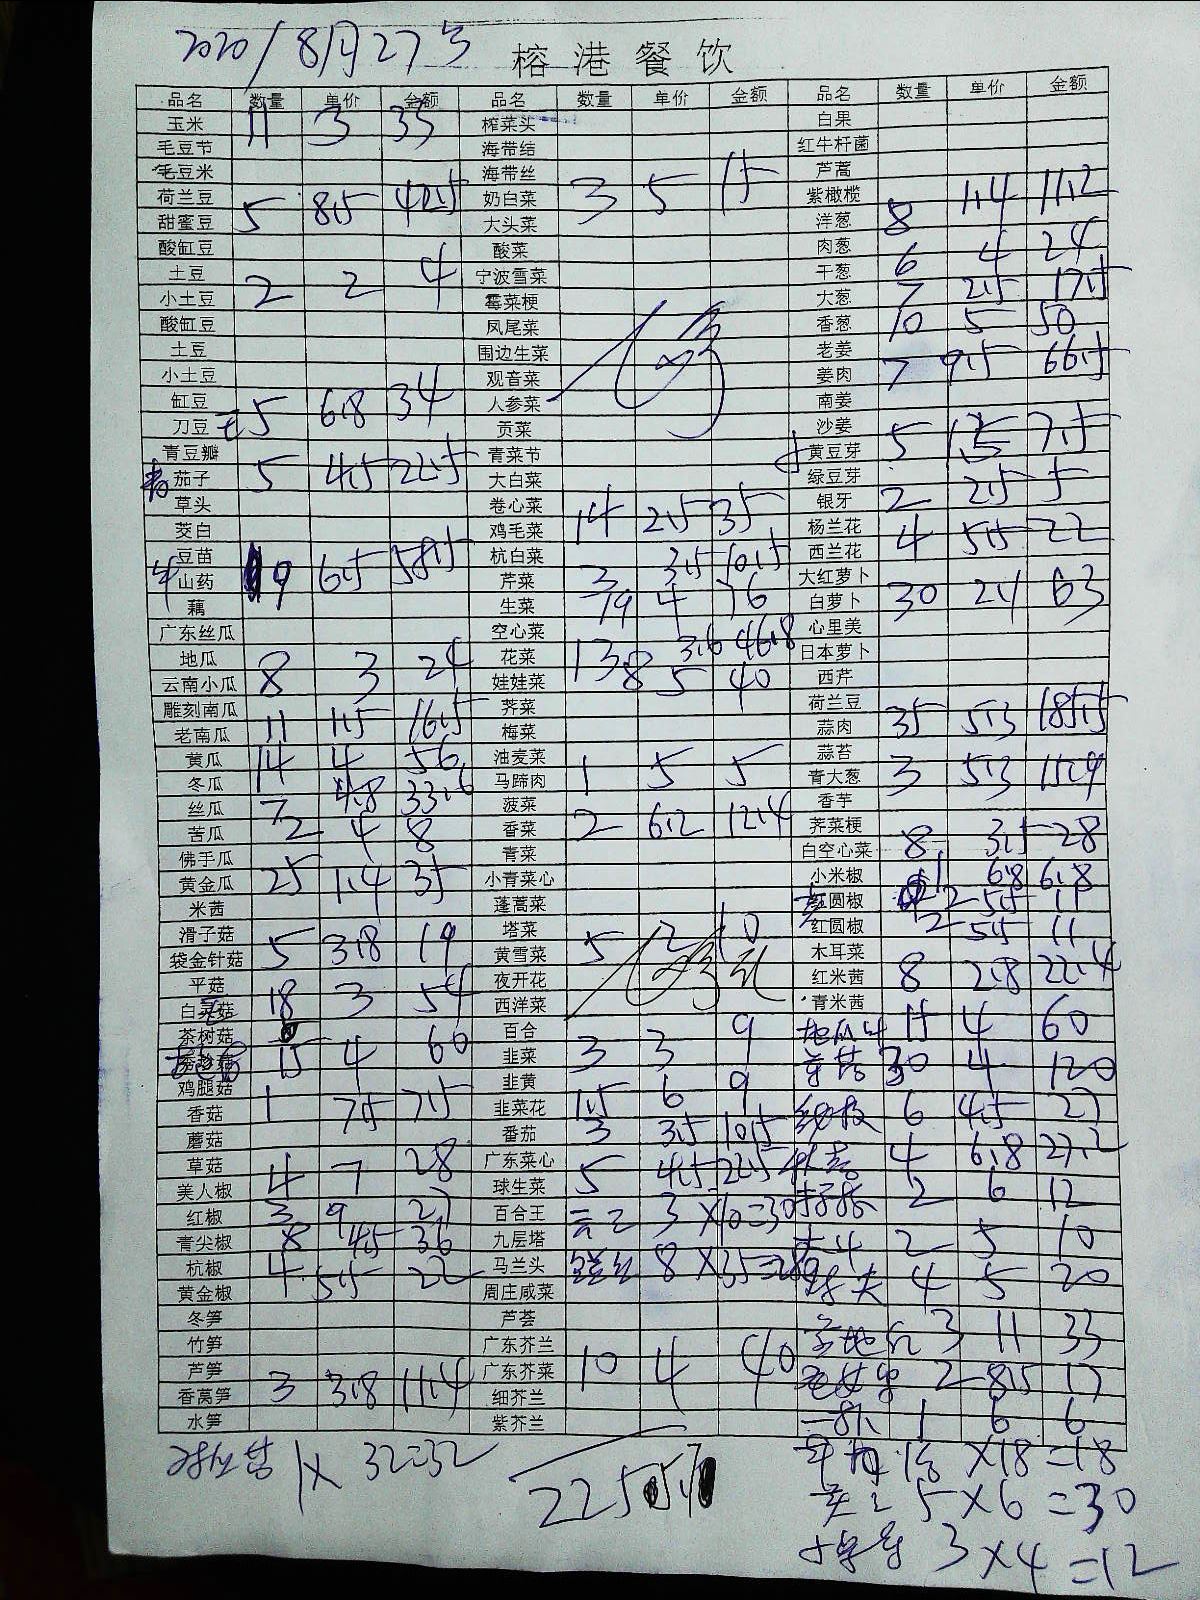 2020/8月27号
榕港餐饮
品名 数量 单价 金额 品名 数量 单价 金额 品名 数量 单价 金额
玉米 11 3 33 榨菜头 白果
毛豆节 海带结 红牛杆菌
毛豆米 海带丝 芦蒿
荷兰豆 5 8.5 42.5 奶白菜 3 5 15 紫橄榄
甜蜜豆 大头菜 洋葱 8 1.4 11.2
酸缸豆 酸菜 肉葱 6 4 24
土豆 2 2 4 宁波雪菜 干葱 7 2.5 17.5
小土豆 霉菜梗 大葱
酸缸豆 凤尾菜 香葱 10 5 50
土豆 围边生菜 老姜
小土豆 观音菜 姜肉 7 9.5 66.5
缸豆 5 6.8 34 人参菜 南姜
刀豆 贡菜 沙姜
青豆瓣 青菜节 黄豆芽 5 1.5 7.5
茄子 5 4.5 22.5 大白菜 绿豆芽
草头 卷心菜 14 2.5 35 银牙 2 2.5 5
茭白 鸡毛菜 杨兰花
豆苗 杭白菜 西兰花 4 5.5 22
山药 9 6.5 58.5 芹菜 3 3.5 10.5 大红萝卜
藕 生菜 19 4 76 白萝卜 30 2.1 63
广东丝瓜 空心菜 心里美
地瓜 8 3 24 花菜 13 3.6 46.8 日本萝卜
云南小瓜 娃娃菜 8 5 40 西芹
雕刻南瓜 荠菜 荷兰豆
老南瓜 11 1.5 16.5 梅菜 蒜肉 35 5.3 185.5
黄瓜 14 4 56 油麦菜 蒜苔
冬瓜 马蹄肉 1 5 5 青大葱 3 5.3 15.9
丝瓜 7 4.8 33.6 菠菜 香芋
苦瓜 2 4 8 香菜 2 6.2 12.4 荠菜梗
佛手瓜 青菜 白空心菜 8 3.5 28
黄金瓜 25 1.4 35 小青菜心 小米椒 1 6.8 6.8
米茜 蓬蒿菜 圆椒 2 5.5 11
滑子菇 塔菜 红圆椒 2 5.5 11
袋金针菇 5 3.8 19 黄雪菜 5 2 10 木耳菜
平菇 夜开花 红米茜 8 2.8 22.4
白灵菇 18 3 54 西洋菜 青米茜
茶树菇 百合 15 4 60
15 4 60 韭菜 3 3 9 30 4 120
鸡腿菇 韭黄
香菇 1 7.5 7.5 韭菜花 1.5 6 9 6 4.5 27
蘑菇 番茄 3 3.5 10.5
草菇 广东菜心 4 6.8 27.2
美人椒 4 7 28 球生菜 5 4.5 22.5
红椒 3 9 27 百合王 3×10=30 2 6 12
青尖椒 8 4.5 36 九层塔 2 5 10
杭椒 4 5.5 22 马兰头 8×35=280
黄金椒 周庄咸菜 4 5 20
冬笋 芦荟
竹笋 广东芥兰 3 11 33
芦笋 广东芥菜 10 4 40 2 8.5 17
香莴笋 3 3.8 11.4 细芥兰
水笋 紫芥兰 1 6 6
1×32=32
×18=18
5×6=30
3×4=12